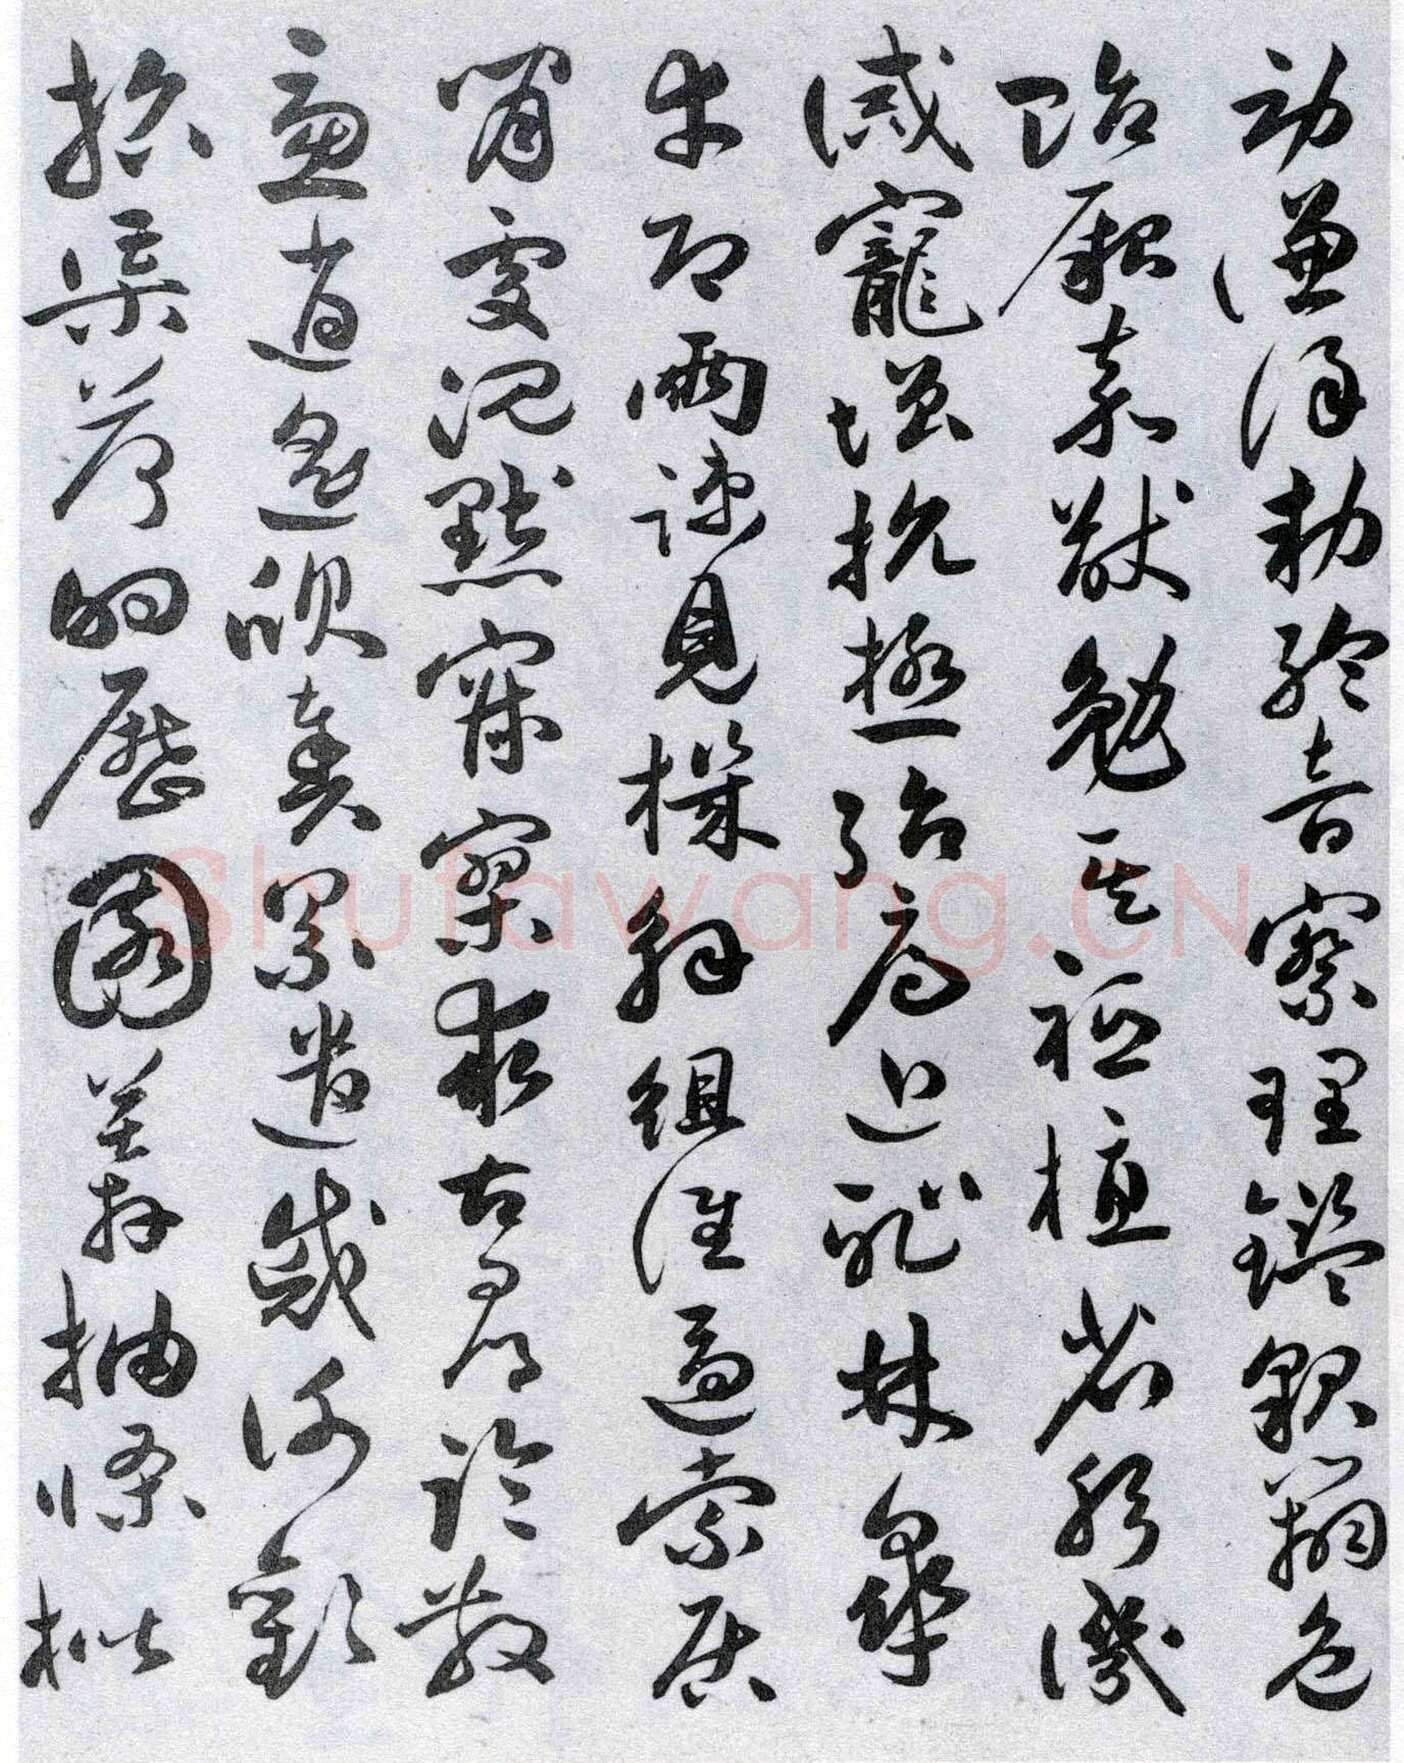 勞謙謹勅聆音察理鑑貌辯色
貽厥嘉猷勉其祗植省躬譏
誡寵增抗極殆辱近恥林皋
幸即兩疏見機解組誰逼索居
閑處沉默寂寥求古尋論散
慮逍遙欣奏累遣慼謝歡
招渠荷的歷園莽抽條枇
Shufawang.CN